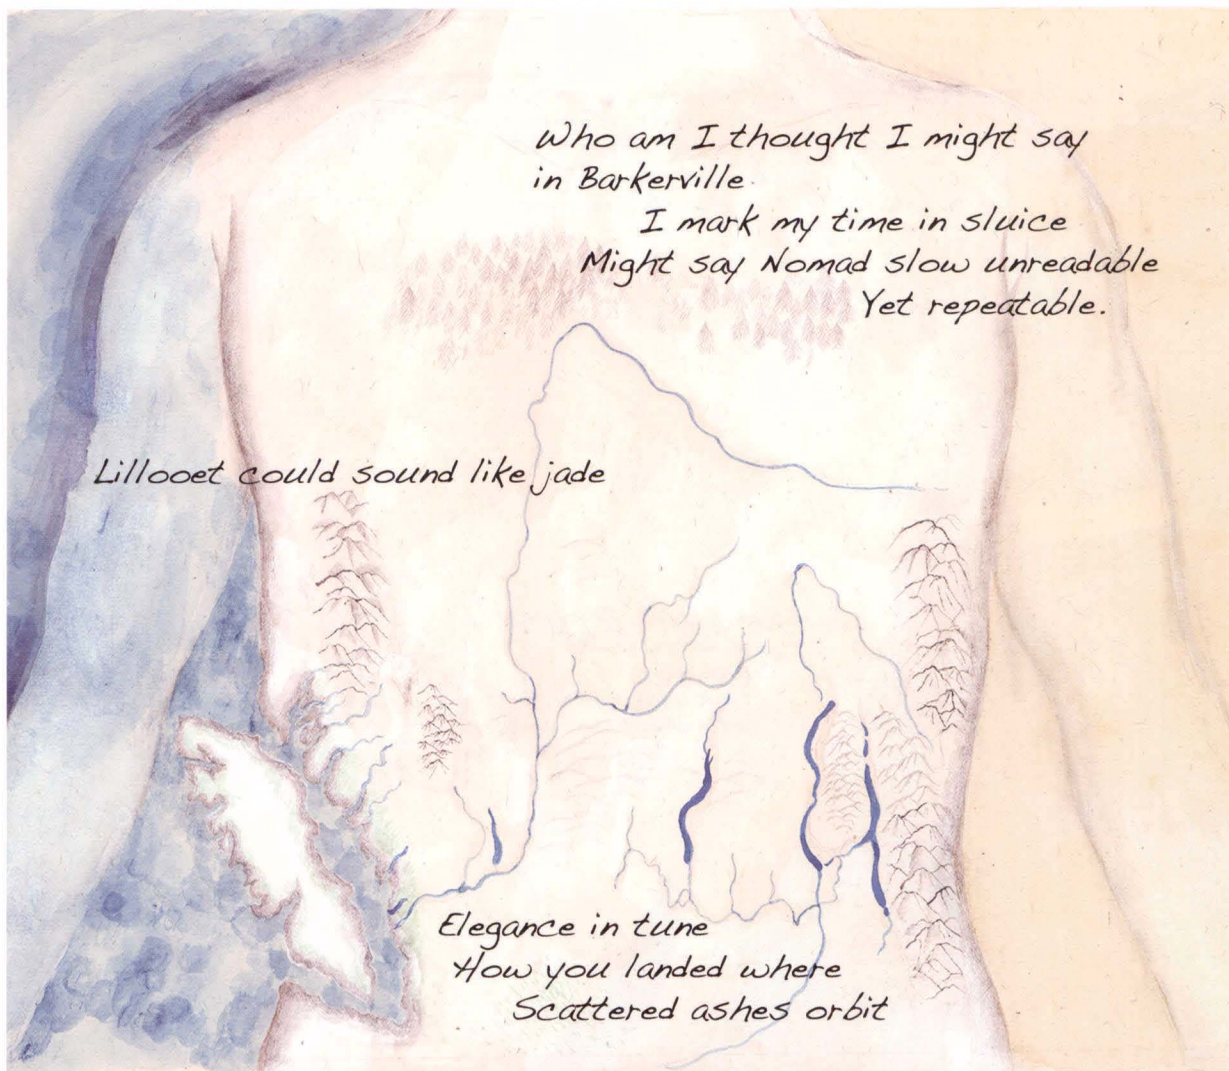 Who am I thought I might say
in Barkerville
I mark my time in sluice
Might say Nomad slow unreadable
Yet repeatable.
Lillooet could sound like jade
Elegance in tune
How you landed where
Scattered ashes orbit